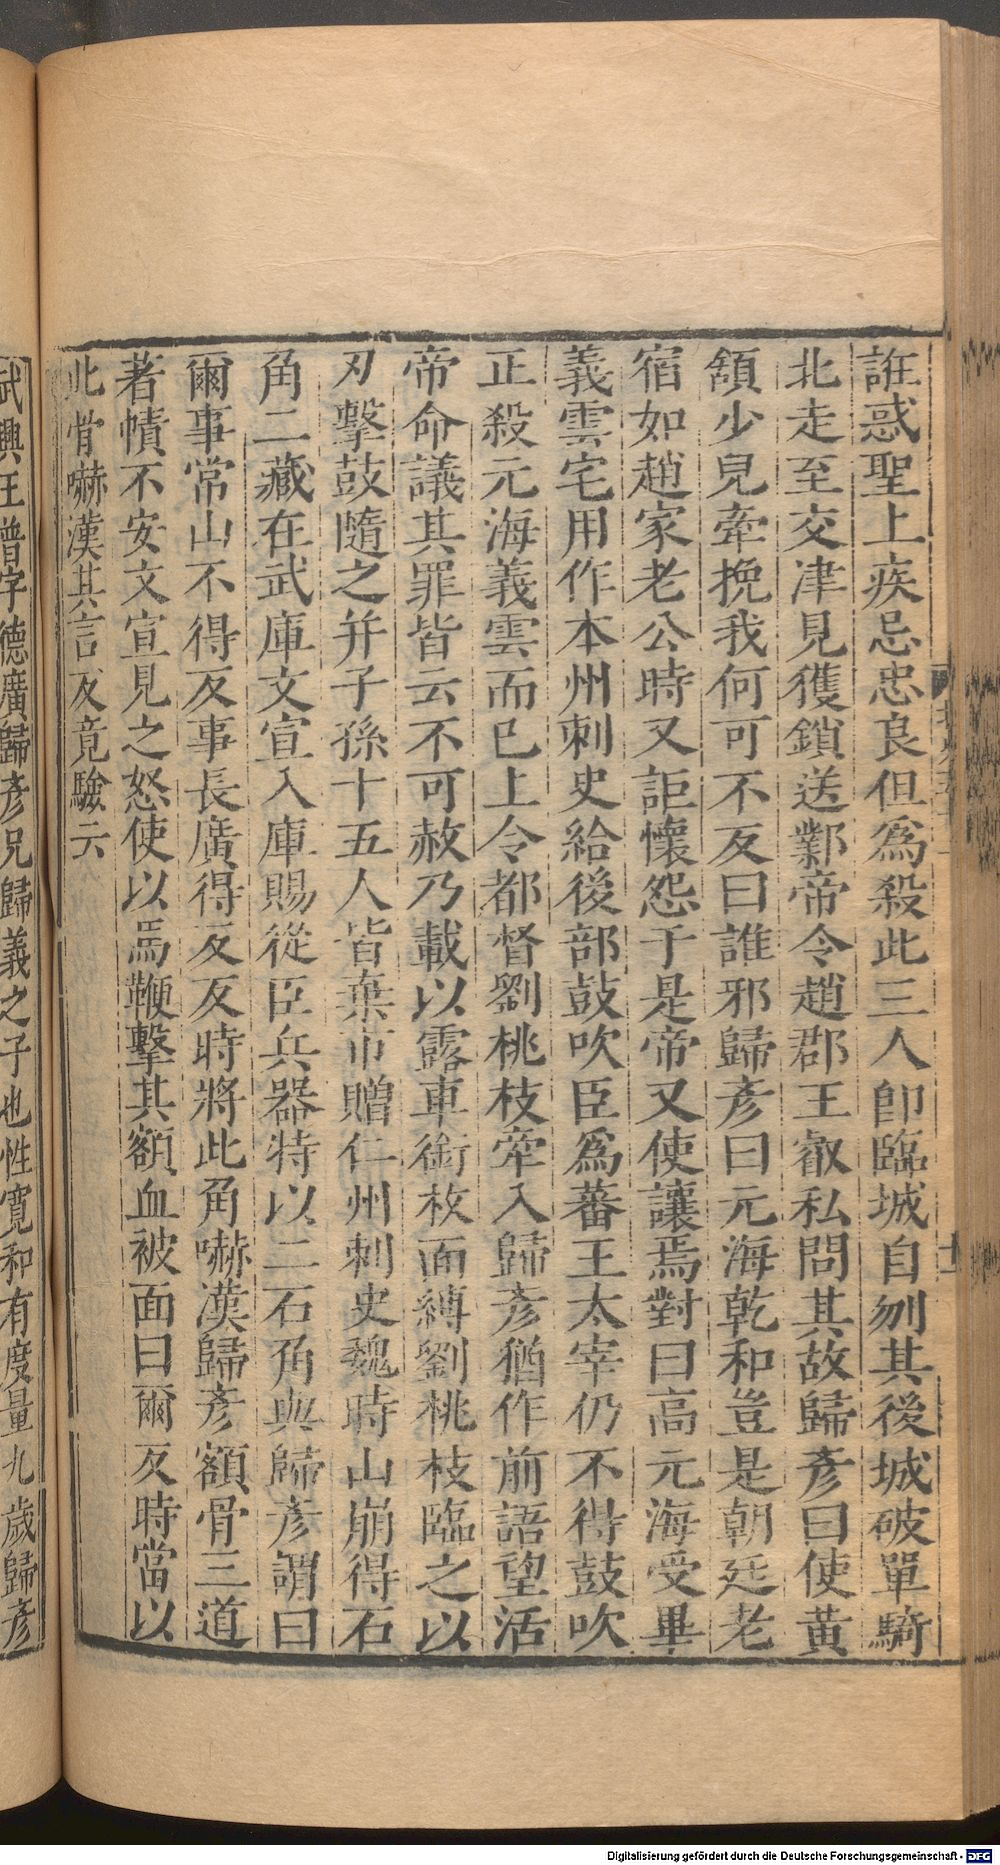 誑惑聖上疾忌忠良但爲殺此三人卽臨城自刎其後城破單騎
北走至交津見獲鎖送鄴帝令趙郡王叡私問其故歸彥曰使黃
頷少兒牽挽我何可不反曰誰邪歸彥曰元海乾和豈是朝廷老
宿如趙家老公時又詎懷怨于是帝又使讓焉對曰高元海受畢
義雲宅用作本州刺史給後部鼓吹臣爲蕃王太宰仍不得鼓吹
正殺元海義雲而已上令都督劉桃枝牽入歸彥猶作前語望活
帝命議其罪皆云不可赦乃載以露車銜枚面縛劉桃枝臨之以
刃擊鼓隨之并子孫十五人皆棄市贈仁州刺史魏時山崩得石
角二藏在武庫文宣入庫賜從臣兵器特以二石角與歸彥謂曰
爾事常山不得反事長廣得反反時將此角嚇漢歸彥額骨三道
著幘不安文宣見之怒使以馬鞭擊其額血被面曰爾反時當以
此骨嚇漢其言反竟驗云
武興王普字德廣歸彥兄歸義之子也性寬和有度量九歲歸彥
Digitalisierung gefördert durch die Deutsche Forschungsgemeinschaft - DFG